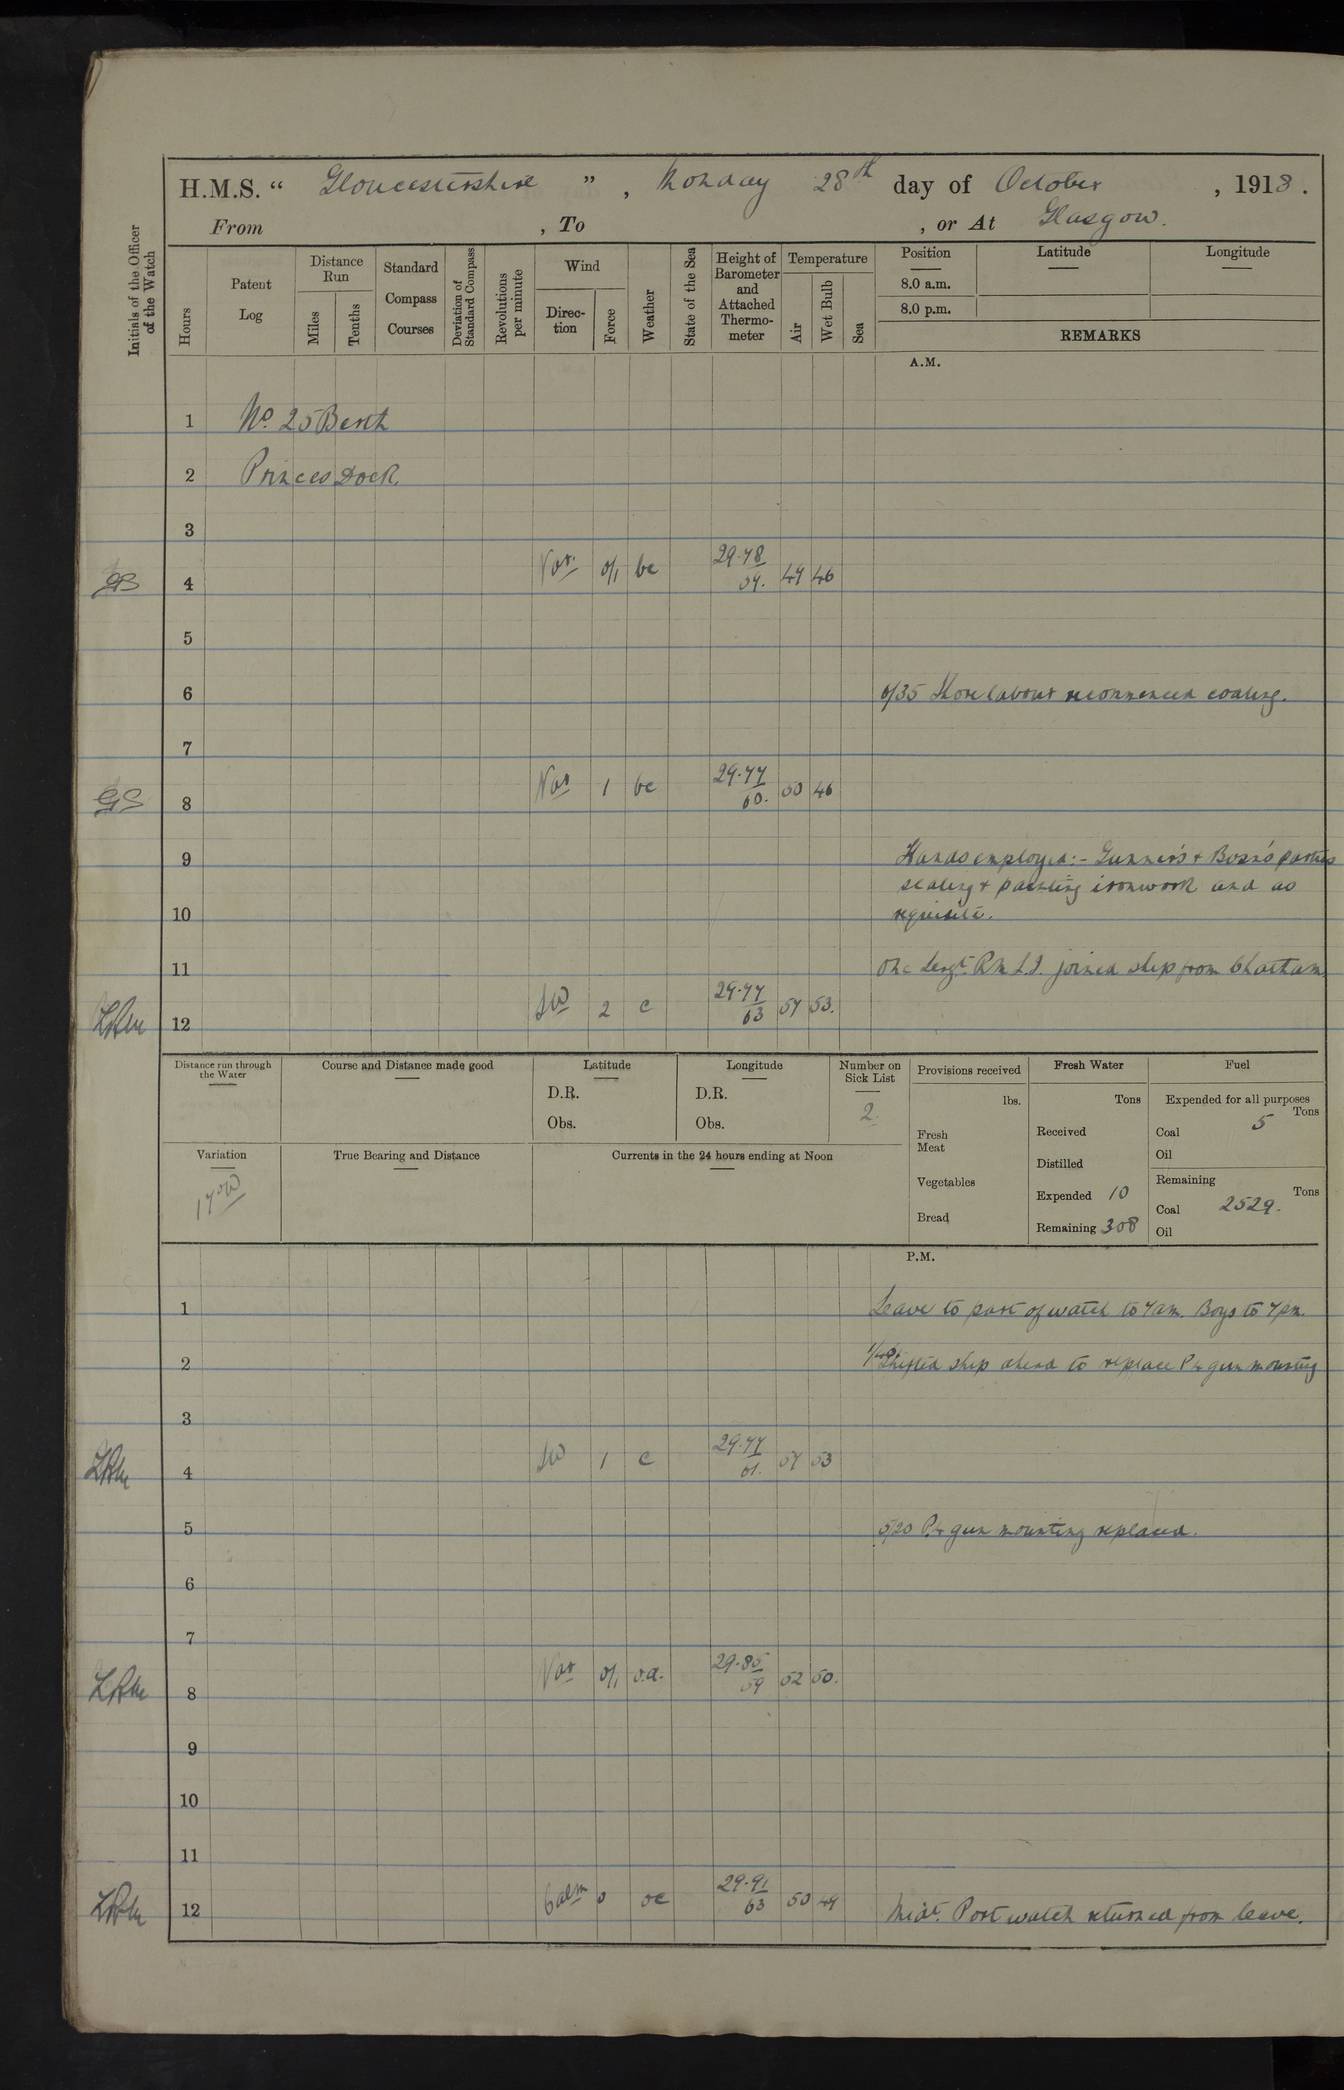 H.M.S. " Gloucestershire " , Monday 28th day of October , 1918 .
From , To , or At Glasgow.
Initials of the Officer of the Watch
Hours
Patent Log
Distance Run
Miles
Tenths
Standard Compass Courses
Deviation of Standard Compass
Revolutions per minute
Wind
Direction
Force
Weather
State of the Sea
Height of Barometer and Attached Thermometer
Temperature
Air
Wet Bulb
Sea
Position Latitude Longitude
8.0 a.m.
8.0 p.m.
REMARKS
A.M.
1 No. 25 Berth
2 Princes Dock.
3
4 Var. 0/1 bc 29.78 59. 49 46
5
6 6/35 Shore labour recommenced coaling.
7
GS 8 Var 1 bc 29.77 60. 50 46
9 Hands employed:- Gunner's & Bosn's parties
scaling & painting ironwork and as
10 requisite.
11 One Sergt. RMLI. joined ship from Chatham
12 SW 2 c 29.77 63 57 53.
Distance run through the Water
Course and Distance made good
Latitude
D.R.
Obs.
Longitude
D.R.
Obs.
Number on Sick List
2.
Provisions received
lbs.
Fresh Meat
Vegetables
Bread
Fresh Water
Tons
Received
Distilled
Expended 10
Remaining 308
Fuel
Expended for all purposes
Tons
Coal 5
Oil
Remaining
Tons
Coal 2529.
Oil
Variation
17°W
True Bearing and Distance
Currents in the 24 hours ending at Noon
P.M.
1 Leave to part of watch to 7am. Boys to 7pm.
2 Shifted ship ahead to replace P4 gun mounting
3
4 SW 1 c 29.77 61. 57 53
5 5/20 P.4 gun mounting replaced.
6
7
8 Var 0/1 o.d. 29.85 59 52 50.
9
10
11
12 Calm 0 oc 29.91 63 50 49 Midt. Port watch returned from leave.